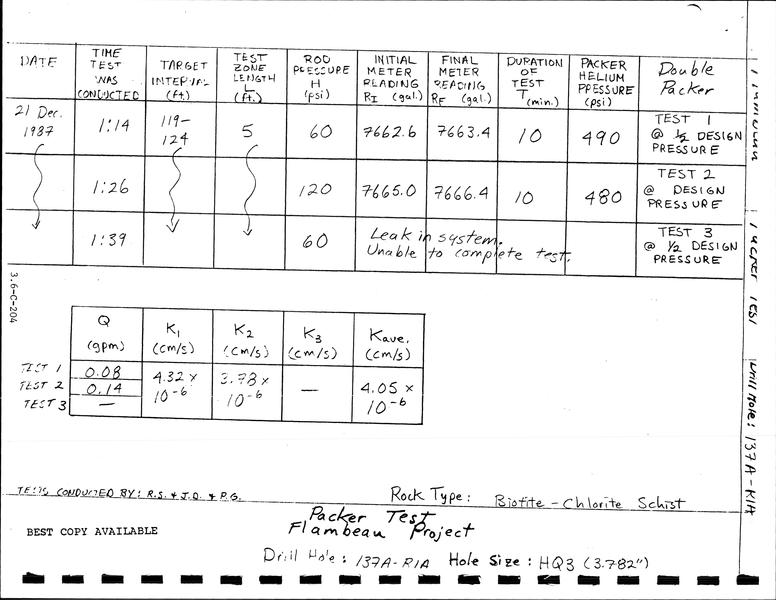 DATE
TIME TEST WAS CONDUCTED
TARGET INTERVAL (ft.)
TEST ZONE LENGTH L (ft.)
ROD PRESSURE H (psi)
INITIAL METER READING RI (gal.)
FINAL METER READING RF (gal.)
DURATION OF TEST T (min.)
PACKER HELIUM PRESSURE (psi)
Double Packer
21 Dec. 1987
1:14
119-124
5
60
7662.6
7663.4
10
490
TEST 1 @ 1/2 DESIGN PRESSURE
1:26
120
7665.0
7666.4
10
480
TEST 2 @ DESIGN PRESSURE
1:39
60
Leak in system.
Unable to complete test.
TEST 3 @ 1/2 DESIGN PRESSURE
3.6-C-204
Q (gpm)
K1 (cm/s)
K2 (cm/s)
K3 (cm/s)
Kave. (cm/s)
TEST 1
0.08
TEST 2
0.14
TEST 3
—
4.32 x 10-6
3.78 x 10-6
—
4.05 x 10-6
TESTS CONDUCTED BY: R.S. & J.D. & P.G.
Rock Type: Biotite-Chlorite Schist
BEST COPY AVAILABLE
Packer Test
Flambeau Project
Drill Hole: 137A-R1A Hole Size: HQ3 (3.782")
Drill Hole: 137A-R1A